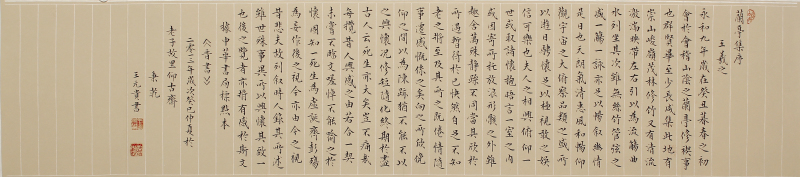 蘭亭集序
王羲之
永和九年歲在癸丑暮春之初
會於會稽山陰之蘭亭修禊事
也群賢畢至少長咸集此地有
崇山峻嶺茂林修竹又有清流
激湍映帶左右引以為流觴曲
水列坐其次雖無絲竹管弦之
盛一觴一詠亦足以暢敘幽情
是日也天朗氣清惠風和暢仰
觀宇宙之大俯察品類之盛所
以遊目騁懷足以極視聽之娛
信可樂也夫人之相與俯仰一
世或取諸懷抱晤言一室之內
或因寄所託放浪形骸之外雖
趣舍萬殊靜躁不同當其欣於
所遇暫得於己快然自足不知
老之將至及其所之既倦情隨
事遷感慨係之矣向之所欣俛
仰之間以為陳跡猶不能不以
之興懷況修短隨化終期於盡
古人云死生亦大矣豈不痛哉
每攬昔人興感之由若合一契
未嘗不臨文嗟悼不能喻之於
懷固知一死生為虛誕齊彭殤
為妄作後之視今亦由今之視
昔悲夫故列敘時人錄其所述
雖世殊事異所以興懷其致一
也後之覽者亦將有感於斯文
據中華書局標點本
《晉書》
二零一三年歲次癸巳仲夏於
老子故里仰古齋
王元章書